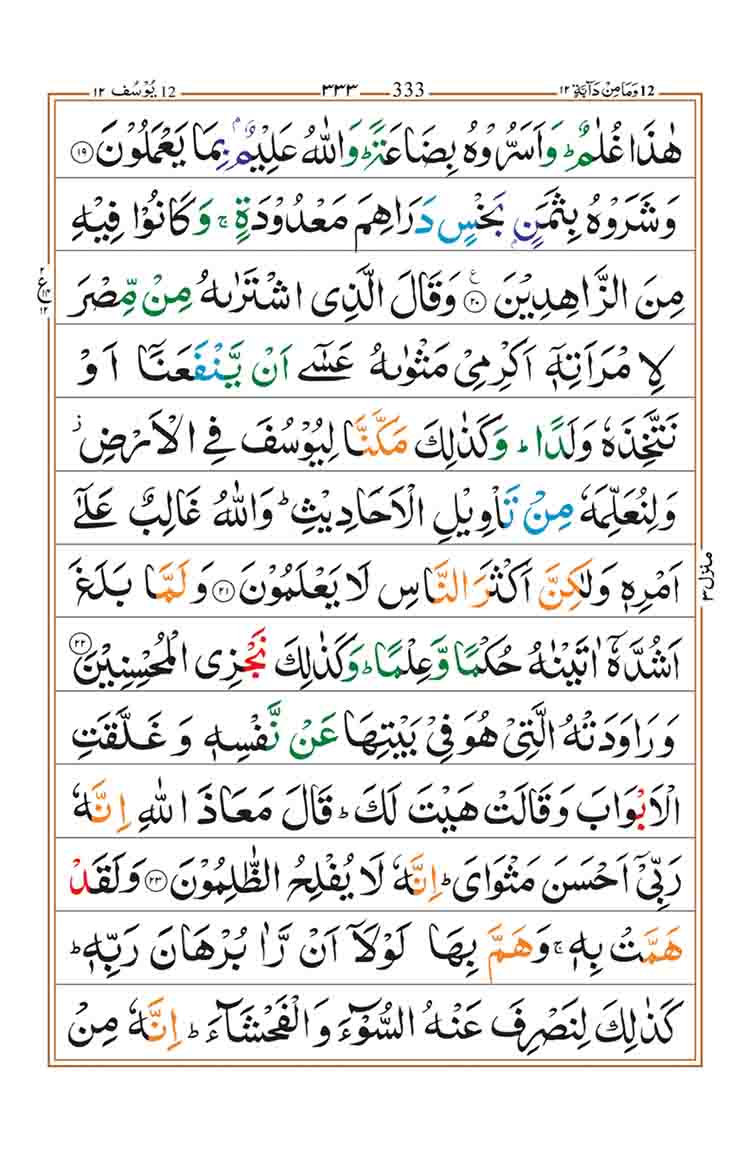 12 وَمَا مِنْ دَآبَّةٍ ١٢ 333 ٣٣٣ 12 يُوْسُف ١٢
هٰذَا غُلٰمٌ ؕ وَاَسَرُّوْهُ بِضَاعَةً ؕ وَاللّٰهُ عَلِيْمٌۢ بِمَا يَعْمَلُوْنَ ١٩
وَشَرَوْهُ بِثَمَنٍۢ بَخْسٍ دَرَاهِمَ مَعْدُوْدَةٍ ۚ وَكَانُوْا فِيْهِ
مِنَ الزَّاهِدِيْنَ ٢٠ ع وَقَالَ الَّذِى اشْتَرٰىهُ مِنْ مِّصْرَ
ع ١٢ ١٢
لِا مْرَاَتِهٖۤ اَكْرِمِىْ مَثْوٰىهُ عَسٰٓى اَنْ يَّنْفَعَنَاۤ اَوْ
نَتَّخِذَهٗ وَلَدًا ؕ وَكَذٰلِكَ مَكَّنَّا لِيُوْسُفَ فِى الْاَرْضِ ز
وَلِنُعَلِّمَهٗ مِنْ تَاْوِيْلِ الْاَحَادِيْثِ ؕ وَاللّٰهُ غَالِبٌ عَلٰٓى
اَمْرِهٖ وَلٰكِنَّ اَكْثَرَ النَّاسِ لَا يَعْلَمُوْنَ ٢١ وَلَمَّا بَلَغَ
منزل ٣
اَشُدَّهٗۤ اٰتَيْنٰهُ حُكْمًا وَّعِلْمًا ؕ وَكَذٰلِكَ نَجْزِى الْمُحْسِنِيْنَ ٢٢
وَرَاوَدَتْهُ الَّتِىْ هُوَ فِىْ بَيْتِهَا عَنْ نَّفْسِهٖ وَ غَلَّقَتِ
الْاَبْوَابَ وَقَالَتْ هَيْتَ لَكَ ؕ قَالَ مَعَاذَ اللّٰهِ اِنَّهٗ
رَبِّىْۤ اَحْسَنَ مَثْوَاىَ ؕ اِنَّهٗ لَا يُفْلِحُ الظّٰلِمُوْنَ ٢٣ وَلَقَدْ
هَمَّتْ بِهٖ ۚ وَهَمَّ بِهَا لَوْلَاۤ اَنْ رَّاٰ بُرْهَانَ رَبِّهٖ ؕ
كَذٰلِكَ لِنَصْرِفَ عَنْهُ السُّوْٓءَ وَالْفَحْشَآءَ ؕ اِنَّهٗ مِنْ